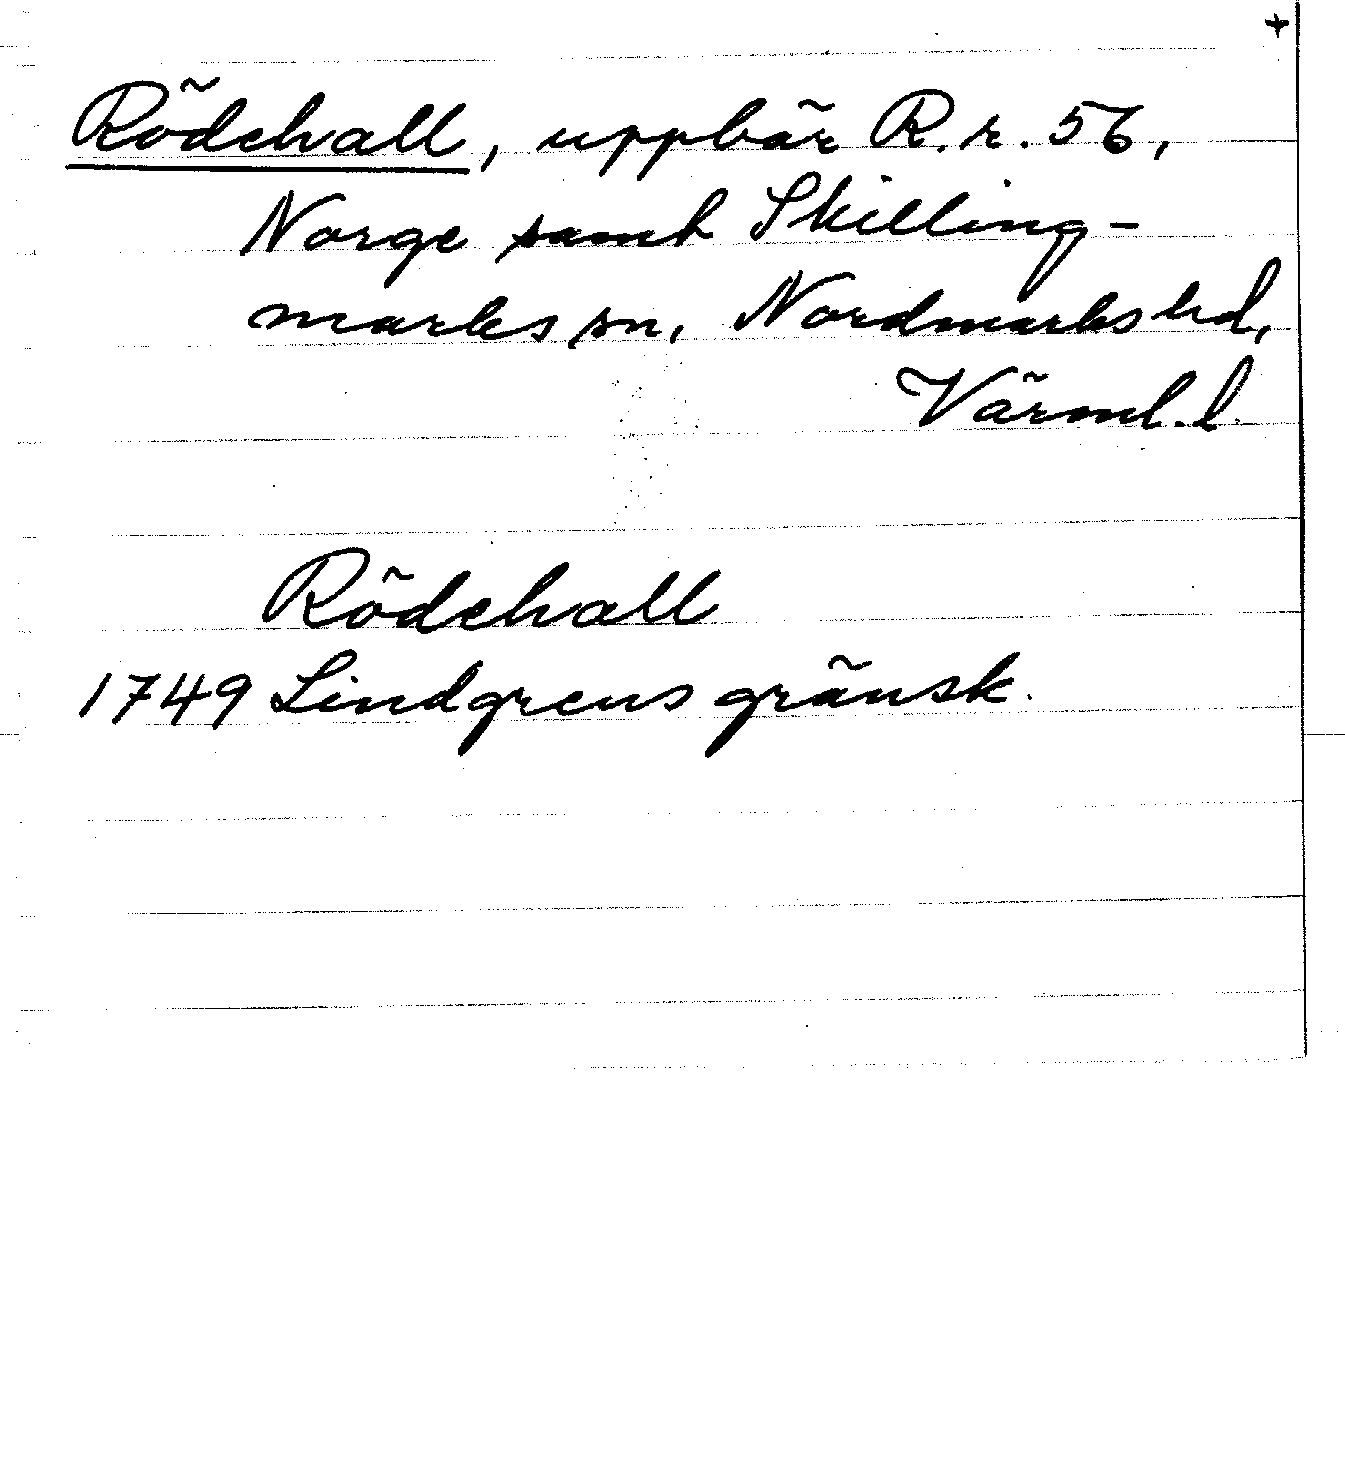 +
Rödehall, uppbär R.r. 56,
Norge samt Skilling-
marks sn, Nordmarks hd,
Värml. l.
Rödehall
1749 Lindgrens gränsk.